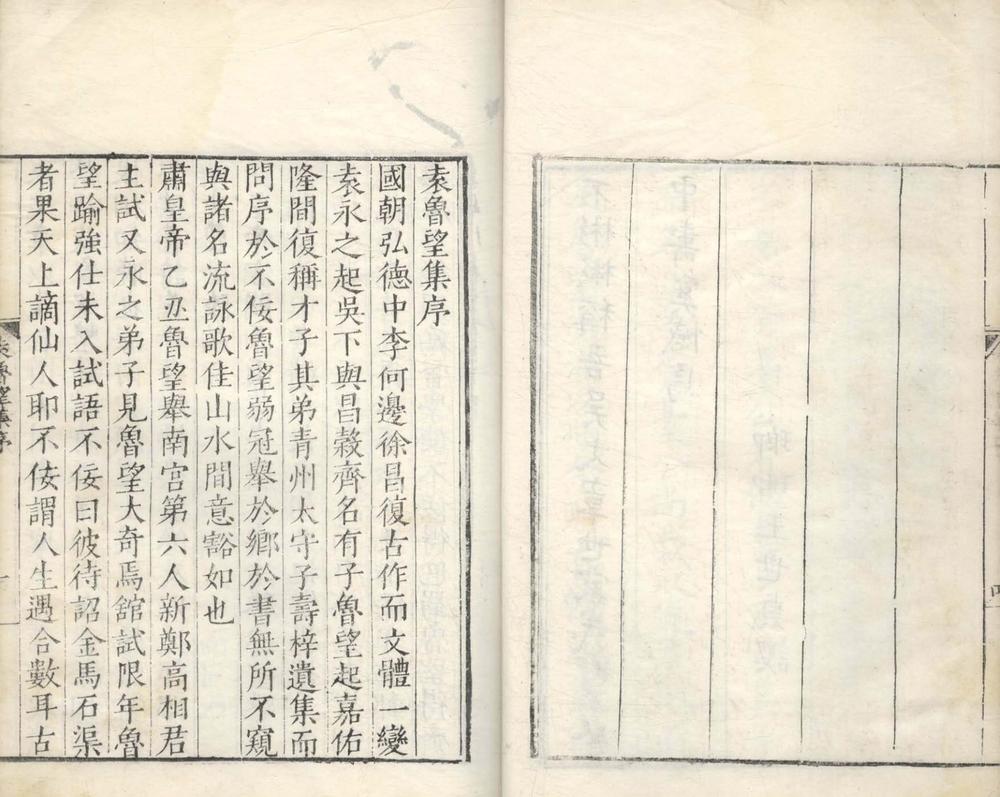 袁魯望集序
國朝弘德中李何邊徐昌復古作而文體一變
袁永之起吳下與昌穀齊名有子魯望起嘉佑
隆間復稱才子其弟青州太守子壽梓遺集而
問序於不佞魯望弱冠舉於鄉於書無所不窺
與諸名流詠歌佳山水間意豁如也
肅皇帝乙丑魯望舉南宫第六人新鄭高相君
主試又永之弟子見魯望大奇焉舘試限年魯
望踰強仕未入試語不佞曰彼待詔金馬石渠
者果天上謫仙人耶不佞謂人生遇合數耳古
袁魯望集序